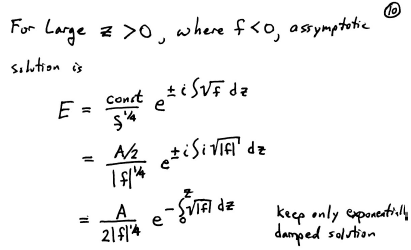 ⑩
For Large z > 0, where f < 0, assymptotic
solution is
E = const / f^{1/4} e^{± i ∫√f dz}
= A/2 / |f|^{1/4} e^{± i ∫ i √|f| dz}
= A / 2|f|^{1/4} e^{- ∫_0^z √|f| dz} keep only exponentially
damped solution